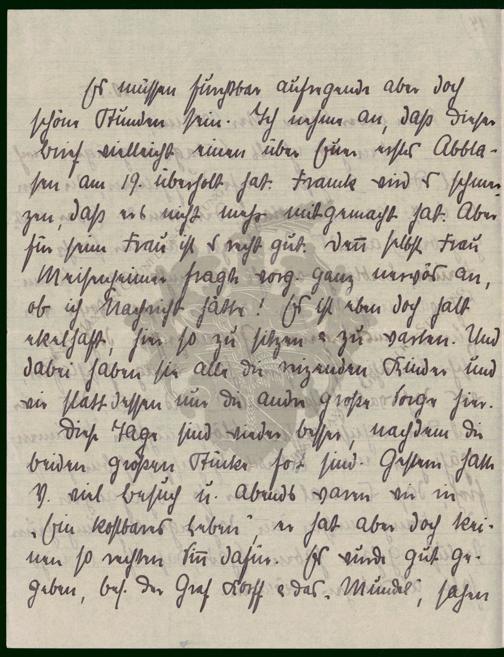 Es müssen furchtbar aufregende aber doch
schöne Stunden sein. Ich nehme an, daß dieser
Brief vielleicht einen über Euer erstes Abbla-
sen am 19. überholt hat. Franck wird es schmer-
zen, daß er's nicht mehr mitgemacht hat. Aber
für seine Frau ist es recht gut. Denn selbst Frau
Meisenheimer fragte vorg. ganz nervös an,
ob ich Nachricht hätte! Es ist eben doch halt
ekelhaft, hier so zu sitzen & zu warten. Und
dabei haben sie alle die reizenden Kinder und
wir statt dessen nur die andre große Sorge hier.
Diese Tage sind wieder besser, nachdem die
beiden großen Stücke fort sind. Gestern hatte
V. viel Besuch u. Abends waren wir in
„Ein kostbares Leben", er hat aber doch kei-
nen so rechten Sinn dafür. Es wurde gut ge-
geben, bes. der Graf Korff & das Mündel, sahen